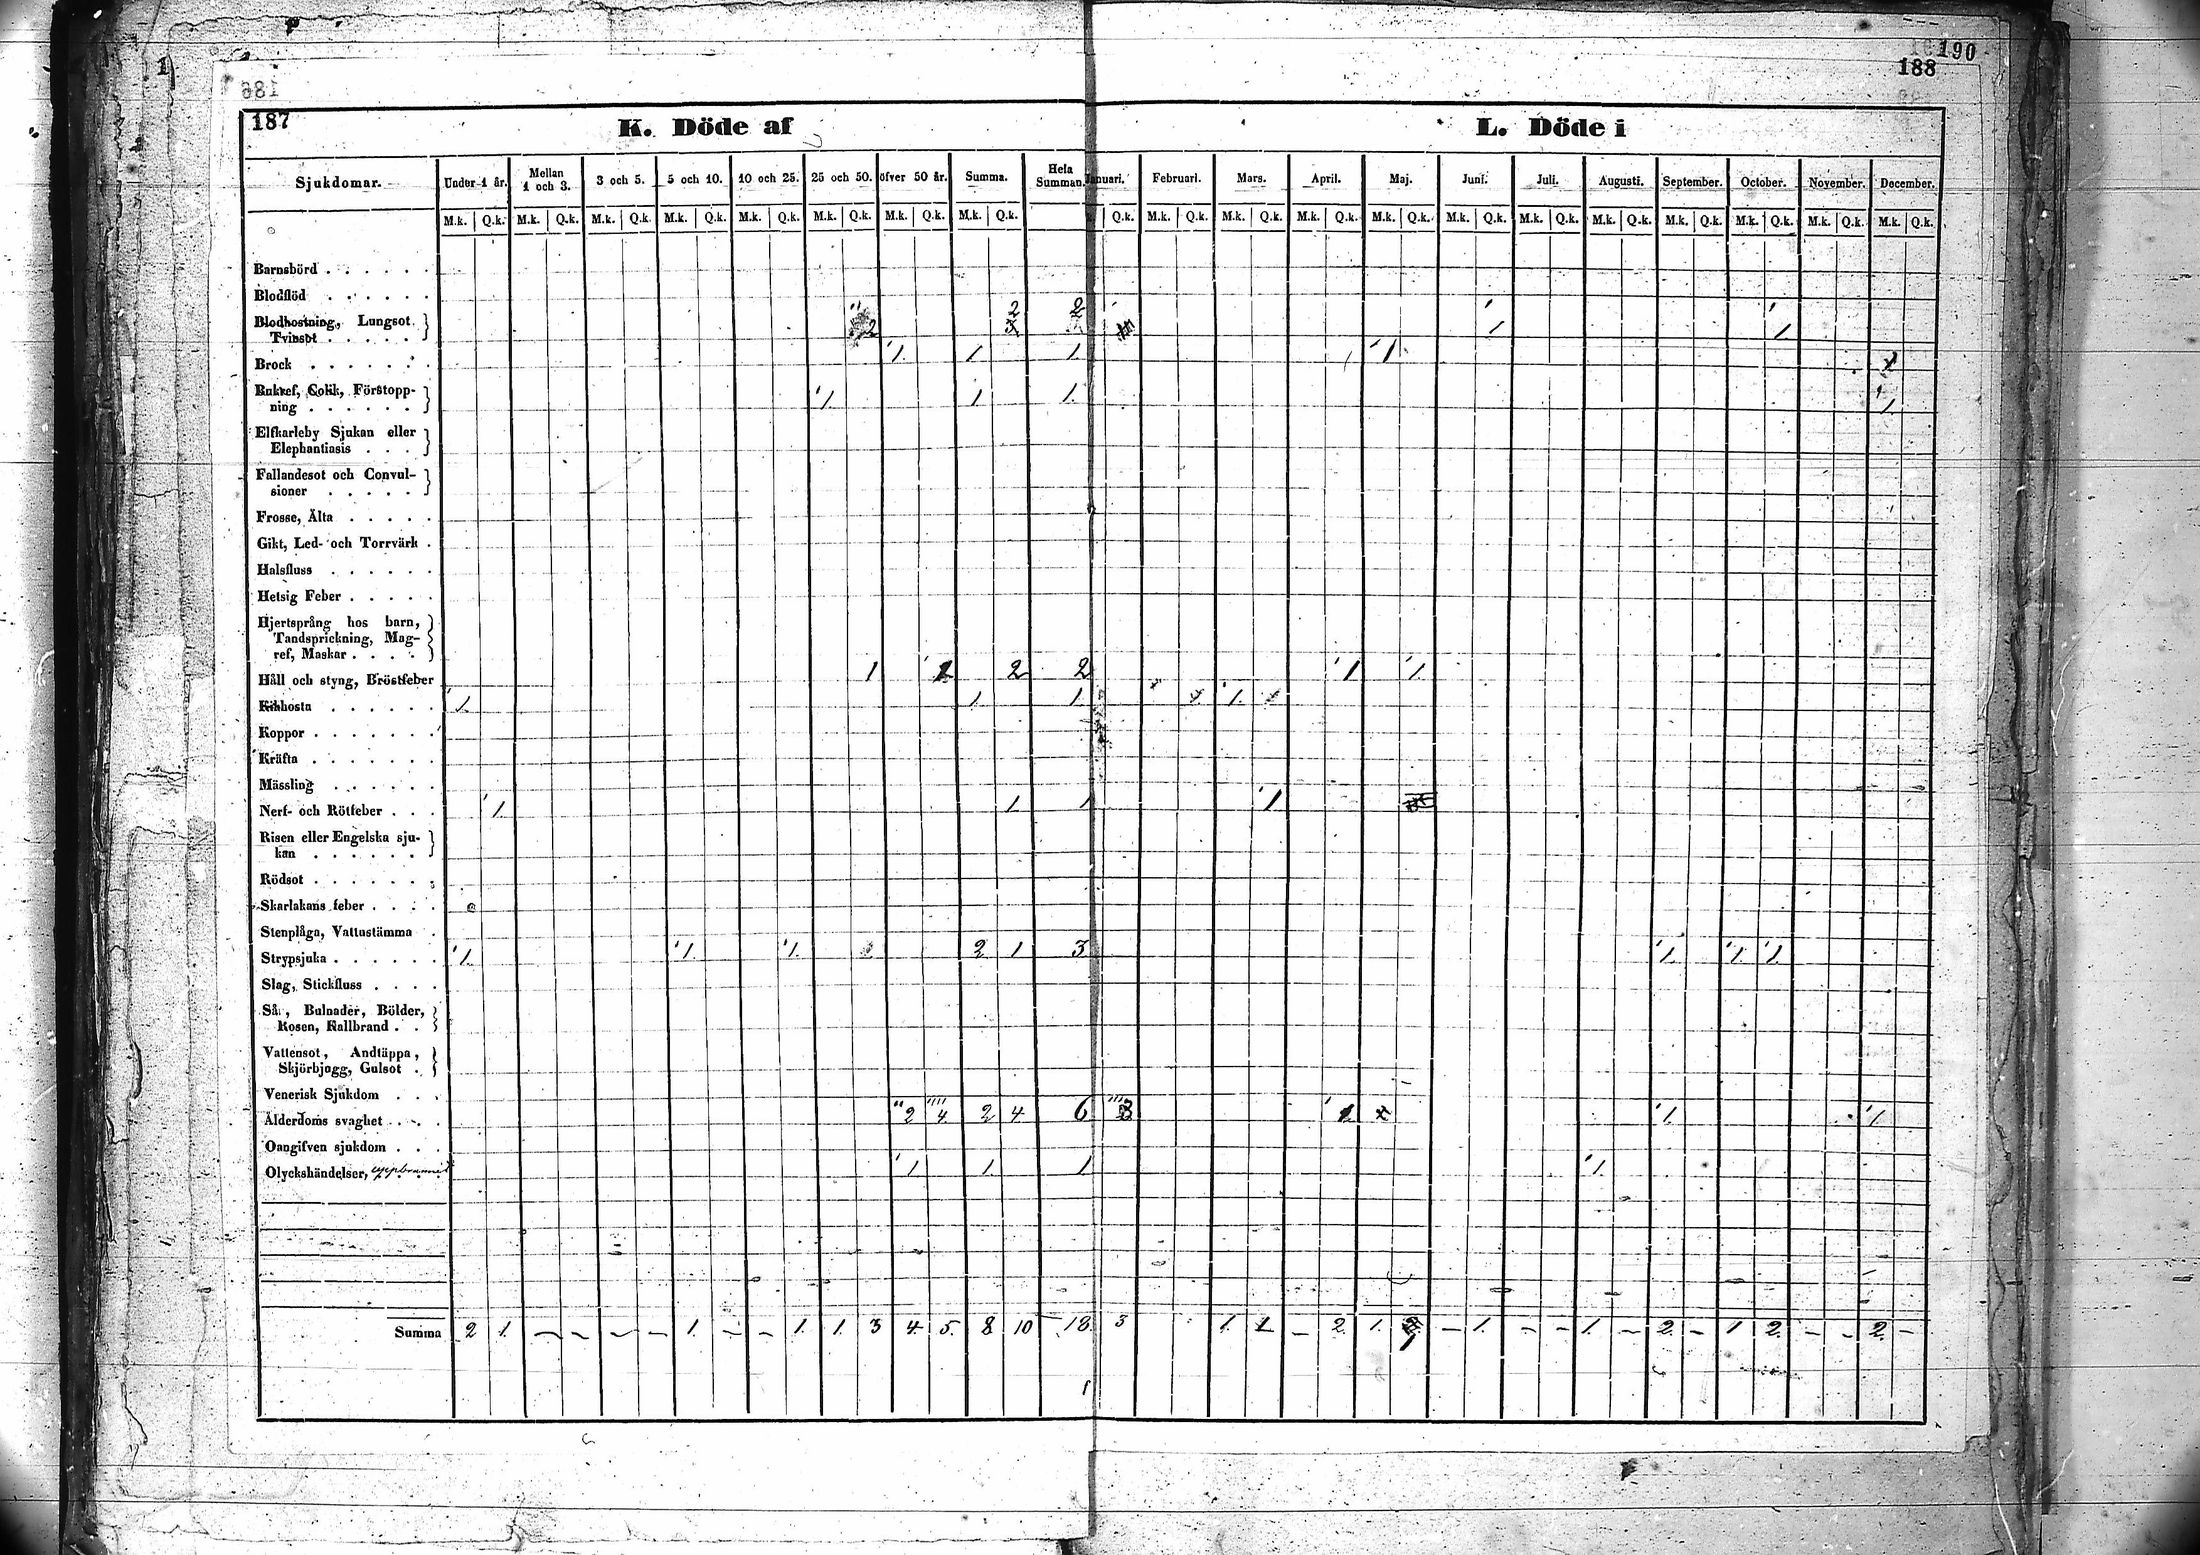 190
188
186
187
K. Döde af
L. Döde i
Sjukdomar. Under 1 år. Mellan 1 och 3. 3 och 5. 5 och 10. 10 och 25. 25 och 50. öfver 50 år. Summa. Hela Summan. Januari. Februari. Mars. April. Maj. Juni. Juli. Augusti. September. October. November. December.
M.k. Q.k. M.k. Q.k. M.k. Q.k. M.k. Q.k. M.k. Q.k. M.k. Q.k. M.k. Q.k. M.k. Q.k. Q.k. M.k. Q.k. M.k. Q.k. M.k. Q.k. M.k. Q.k. M.k. Q.k. M.k. Q.k. M.k. Q.k. M.k. Q.k. M.k. Q.k. M.k. Q.k. M.k. Q.k.
Barnsbörd . . . . . .
Blodflöd . . . . . .
2 2
Blodhostning, Lungsot
Tvinsot . . . . . } 2 3 1 1
Brock . . . . . . . 1 1 1 1
Bukref, Colik, Förstopp-
ning . . . . . . } 1 1 1 1
Elfkarleby Sjukan eller
Elephantiasis . . . }
Fallandesot och Convul-
sioner . . . . . }
Frosse, Älta . . . . .
Gikt, Led- och Torrvärk .
Halsfluss . . . . . .
Hetsig Feber . . . . .
Hjertsprång hos barn,
Tandsprickning, Mag-
ref, Maskar . . . . }
Håll och styng, Bröstfeber 1 1 2 2 1 1
Kikhosta . . . . . . 1 1 1 1
Koppor . . . . . . .
Kräfta . . . . . . .
Mässling . . . . . .
Nerf- och Rötfeber . . . 1 1 1 1
Risen eller Engelska sju-
kan . . . . . . }
Rödsot . . . . . . .
Skarlakans feber . . . .
Stenplåga, Vattustämma .
Strypsjuka . . . . . . 1 1 1 2 1 3 1 1 1
Slag, Stickfluss . . . .
Sår, Bulnader, Bölder,
Rosen, Kallbrand . . }
Vattensot, Andtäppa,
Skjörbjugg, Gulsot . }
Venerisk Sjukdom . . .
Ålderdoms svaghet . . . 2 4 2 4 6 3 1 1 1
Oangifven sjukdom . . .
Olyckshändelser, 1 1 1 1
Summa 2 1 – – – – 1 – – 1 1 3 4 5 8 10 18 3 1 1 – 2 1 1 – 1 – – 1 – 2 – 1 2 – – 2 –